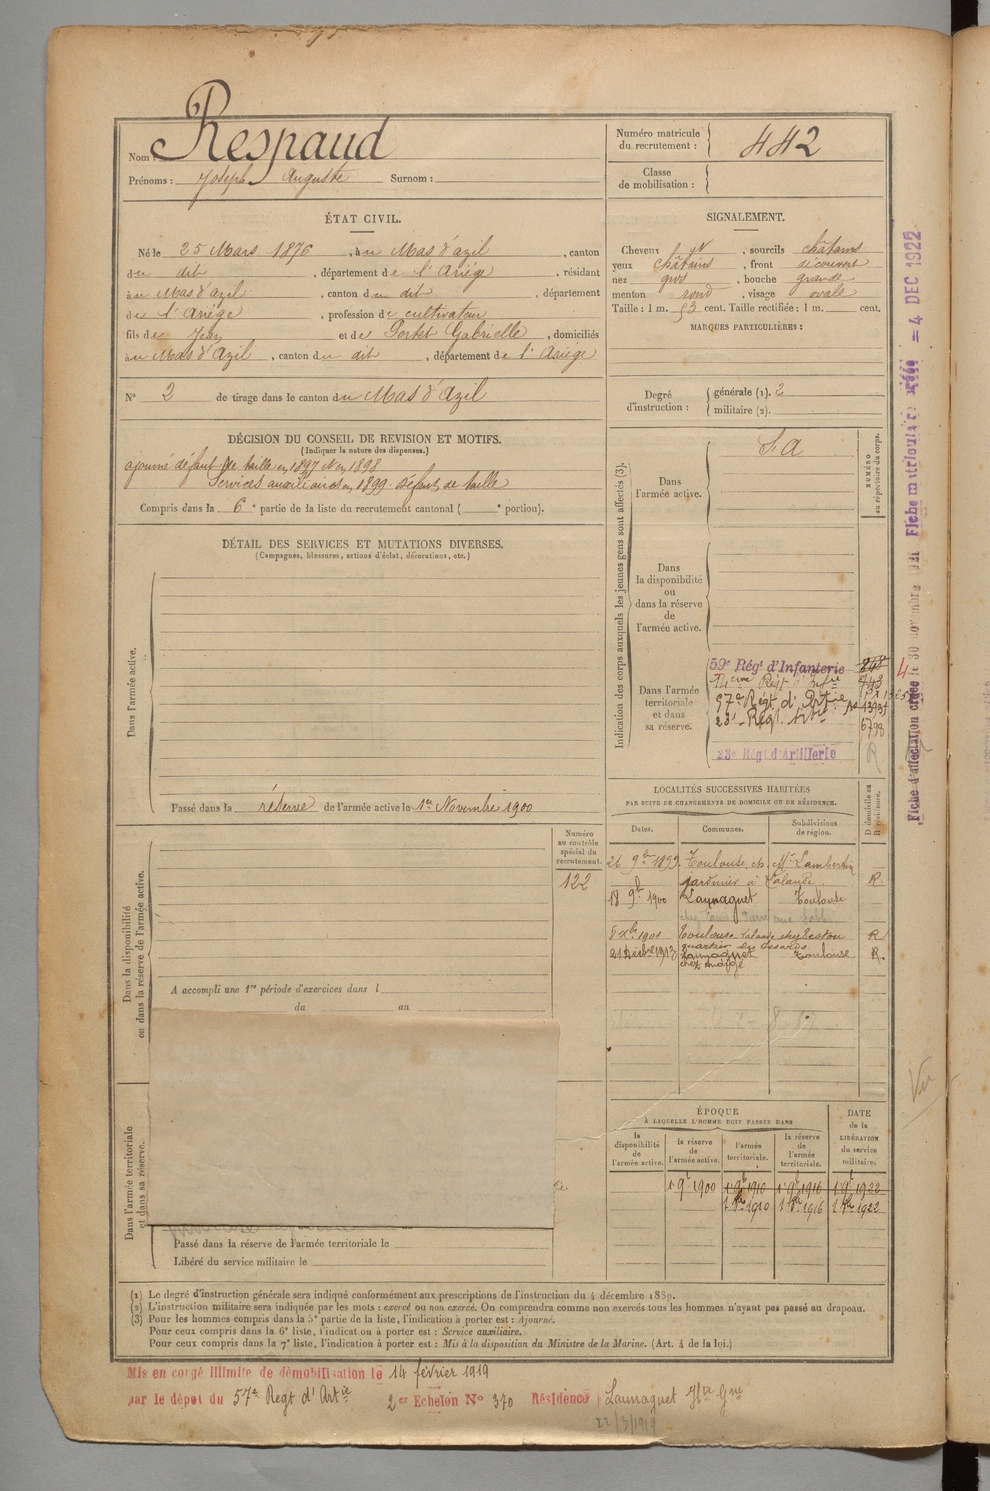 Nom : Respaud
Prénoms : Joseph Auguste Surnom :
Numéro matricule
du recrutement : 442
Classe
de mobilisation :
ÉTAT CIVIL.
Né le 25 Mars 1876, à u Mas d'azil, canton
du dit, département de l'Ariége, résidant
à u Mas d'azil, canton du dit, département
de l'Ariége, profession de cultivateur
fils de Jean et de Portet Gabrielle, domiciliés
à u Mas d'Azil, canton du dit, département de l'Ariège
N° 2 de tirage dans le canton du Mas d'Azil
SIGNALEMENT.
Cheveux et, sourcils châtains
yeux châtains, front découvert
nez gros, bouche grande
menton rond, visage ovale
Taille : 1 m. 53 cent. Taille rectifiée : 1 m. cent.
MARQUES PARTICULIÈRES :
Degré
d'instruction :
générale (1). 2
militaire (2).
DÉCISION DU CONSEIL DE REVISION ET MOTIFS.
(Indiquer la nature des dispenses.)
ajourné défaut de taille en 1897 et en 1898
Services auxiliaires en 1899. Défaut de taille
Compris dans la 6e partie de la liste du recrutement cantonal ( e portion).
DÉTAIL DES SERVICES ET MUTATIONS DIVERSES.
(Campagnes, blessures, actions d'éclat, décorations, etc.)
Dans l'armée active.
Passé dans la réserve de l'armée active le 1er Novembre 1900
Indication des corps auxquels les jeunes gens sont affectés (3).
NUMÉRO
au répertoire du corps.
Dans
l'armée active.
S A
Dans
la disponibilité
ou
dans la réserve
de
l'armée active.
Dans l'armée
territoriale
et dans
sa réserve.
59e Régt d'Infanterie
57e Régt d'Artie
23e Régt Artie
6798
23e Régt d'Artillerie
R
4
Fiche d'affectation créée le 30 novembre Fiche matriculaire créée = 4 DEC 1922
LOCALITÉS SUCCESSIVES HABITÉES
PAR SUITE DE CHANGEMENTS DE DOMICILE OU DE RÉSIDENCE.
D domicile ou
R résidence.
Dates. Communes. Subdivisions
de région.
26 9bre 1899 Toulouse ch. Mr Lambertin
jardinier à Lalande R
18 9bre 1900 Launaguet Toulouse
8 Xbre 1901 Toulouse Lalande R
quartier des Izards
21 1913 Launaguet Toulouse R.
Numéro
au contrôle
spécial du
recrutement.
122
Dans la disponibilité
ou dans la réserve de l'armée active.
A accompli une 1re période d'exercices dans l
du au
Dans l'armée territoriale
et dans sa réserve.
Passé dans la réserve de l'armée territoriale le
Libéré du service militaire le
ÉPOQUE
À LAQUELLE L'HOMME DOIT PASSER DANS
DATE
de la
LIBÉRATION
du service
militaire.
la
disponibilité
de
l'armée active.
la réserve
de
l'armée active.
l'armée
territoriale.
la réserve
de
l'armée
territoriale.
1er 9bre 1900 1er 9bre 1910 1er 9bre 1916 1er 9bre 1922
1er 8bre 1910 1er 8bre 1916 1er 8bre 1922
Vu
(1) Le degré d'instruction générale sera indiqué conformément aux prescriptions de l'instruction du 4 décembre 1889.
(2) L'instruction militaire sera indiquée par les mots : exercé ou non exercé. On comprendra comme non exercés tous les hommes n'ayant pas passé au drapeau.
(3) Pour les hommes compris dans la 5e partie de la liste, l'indication à porter est : Ajourné.
Pour ceux compris dans la 6e liste, l'indication à porter est : Service auxiliaire.
Pour ceux compris dans la 7e liste, l'indication à porter est : Mis à la disposition du Ministre de la Marine. (Art. 4 de la loi.)
Mis en congé illimité de démobilisation le 14 février 1919
par le dépôt du 57e Regt d'Artie 2e Echelon N° 370 Résidence Launaguet Hte Gne
22/3/1919